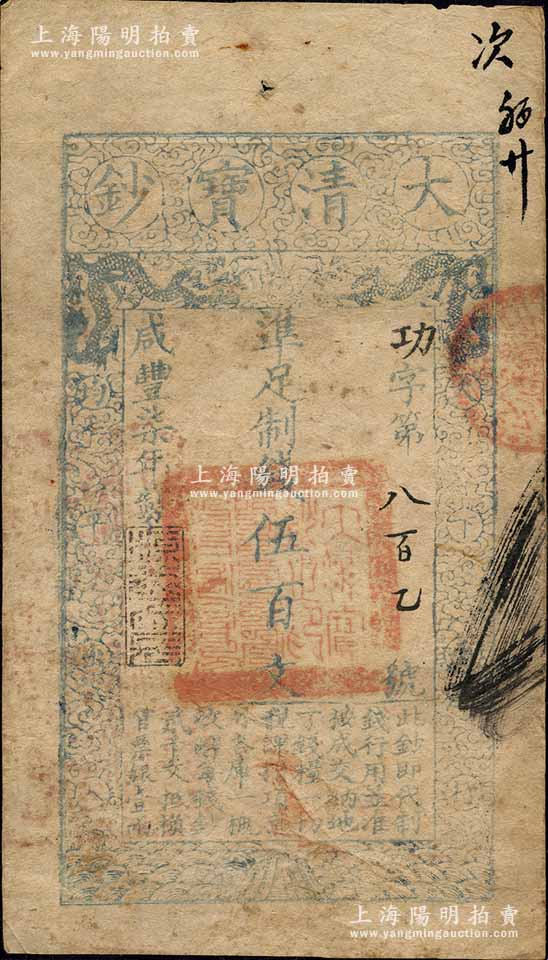 上海陽明拍賣
www.yangmingauction.com
次
大清寶鈔
功字第八百乙號
準足制錢伍百文
咸豐柒年製
上海陽明拍賣
www.yangmingauction.com
此鈔即代制
錢行用並准
按成交納地
丁錢糧一切
稅課捐項京
外各庫一概
收解每錢鈔
貳千文抵換
官票銀壹兩
上海陽明拍賣
www.yangmingauction.com